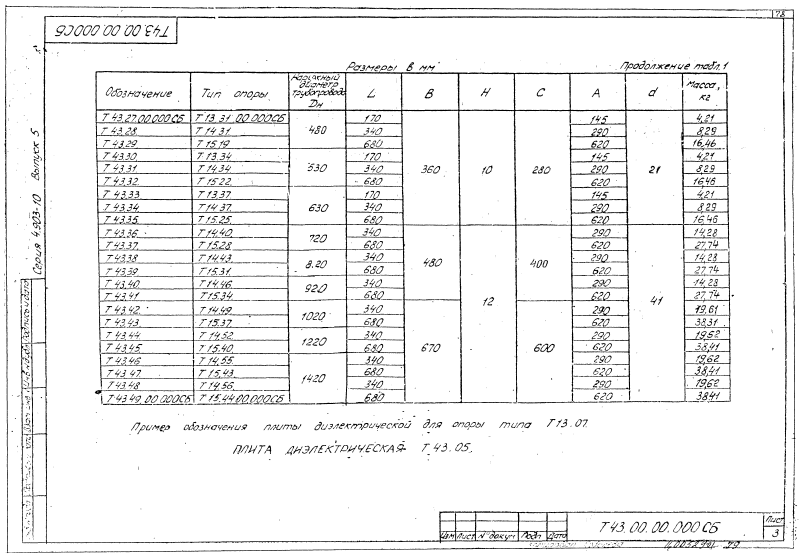 78
Т43.00.00.000СБ
Размеры в мм Продолжение табл.1
Обозначение Тип опоры Наружный диаметр трубопровода Dн L B H C A d Масса, кг
Т43.27.00.000СБ Т13.31.00.000СБ 480 170 360 10 280 145 21 4,21
Т43.28 Т14.31 340 290 8,29
Т43.29 Т15.19 680 620 16,46
Т43.30 Т13.34 530 170 145 4,21
Т43.31 Т14.34 340 290 8,29
Т43.32 Т15.22 680 620 16,46
Т43.33 Т13.37 630 170 145 4,21
Т43.34 Т14.37 340 290 8,29
Т43.35 Т15.25 680 620 16,46
Т43.36 Т14.40 720 340 480 12 400 290 41 14,28
Т43.37 Т15.28 680 620 27,74
Т43.38 Т14.43 8.20 340 290 14,28
Т43.39 Т15.31 680 620 27,74
Т43.40 Т14.46 920 340 290 14,28
Т43.41 Т15.34 680 620 27,74
Т43.42 Т14.49 1020 340 670 600 290 19,61
Т43.43 Т15.37 680 620 38,31
Т43.44 Т14.52 1220 340 290 19,52
Т43.45 Т15.40 680 620 38,41
Т43.46 Т14.55 1420 340 290 19,62
Т43.47 Т15.43 680 620 38,41
Т43.48 Т14.56 340 290 19,62
Т43.49.00.000СБ Т15.44.00.000СБ 680 620 38,41
Пример обозначения плиты диэлектрической для опоры типа Т13.07.
ПЛИТА ДИЭЛЕКТРИЧЕСКАЯ Т43.05.
Серия 4.903-10 Выпуск 5
Т43.00.00.000СБ
Лист
3
Изм Лист N докум Подп Дата